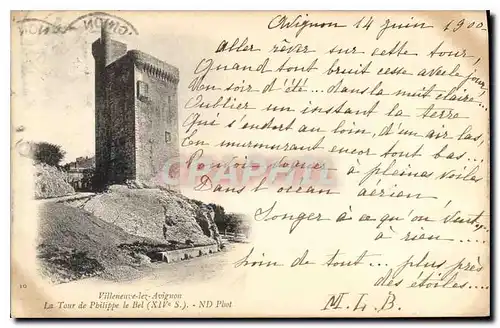 Avignon 14 juin 1900
Aller rêver sur cette tour,
Quand tout bruit cesse avec le jour...
Un soir d'été... dans la nuit claire...
Oublier un instant la terre
Qui s'endort au loin, d'un air las,
En murmurant encor tout bas...
Pouvoir voguer à pleines voiles
Dans l'océan aérien
Songer à ce qu'on veut,
à rien...
Loin de tout... plus près
des étoiles...
M. L. B.
AVIGNON
CPArama
10
Villeneuve-lez-Avignon
La Tour de Philippe le Bel (XIVe S.). - ND Phot